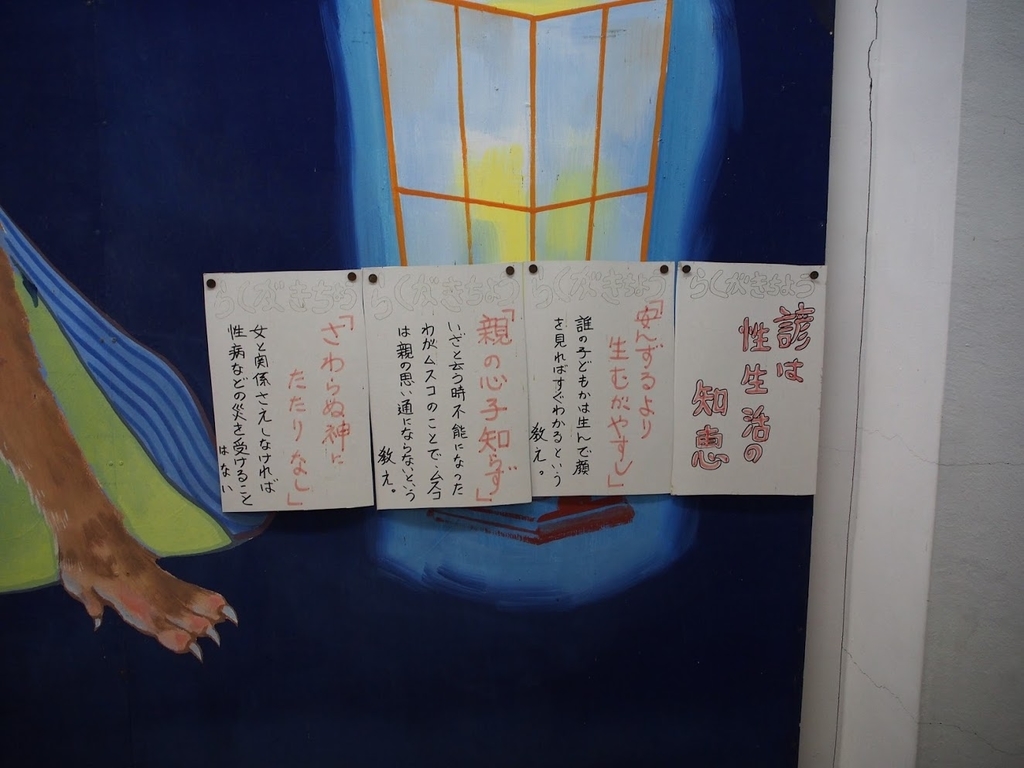 らくがきちょう
諺は
性生活の
知恵
らくがきちょう
「安んずるより
生むがやすし」
誰の子どもかは生んで顔
を見ればすぐわかるという
教え。
らくがきちょう
「親の心子知らず」
いざと云う時不能になった
わがムスコのことで、ムスコ
は親の思い通にならないという
教え。
らくがきちょう
「さわらぬ神に
たたりなし」
女と関係さえしなければ
性病などの災を受けること
はない